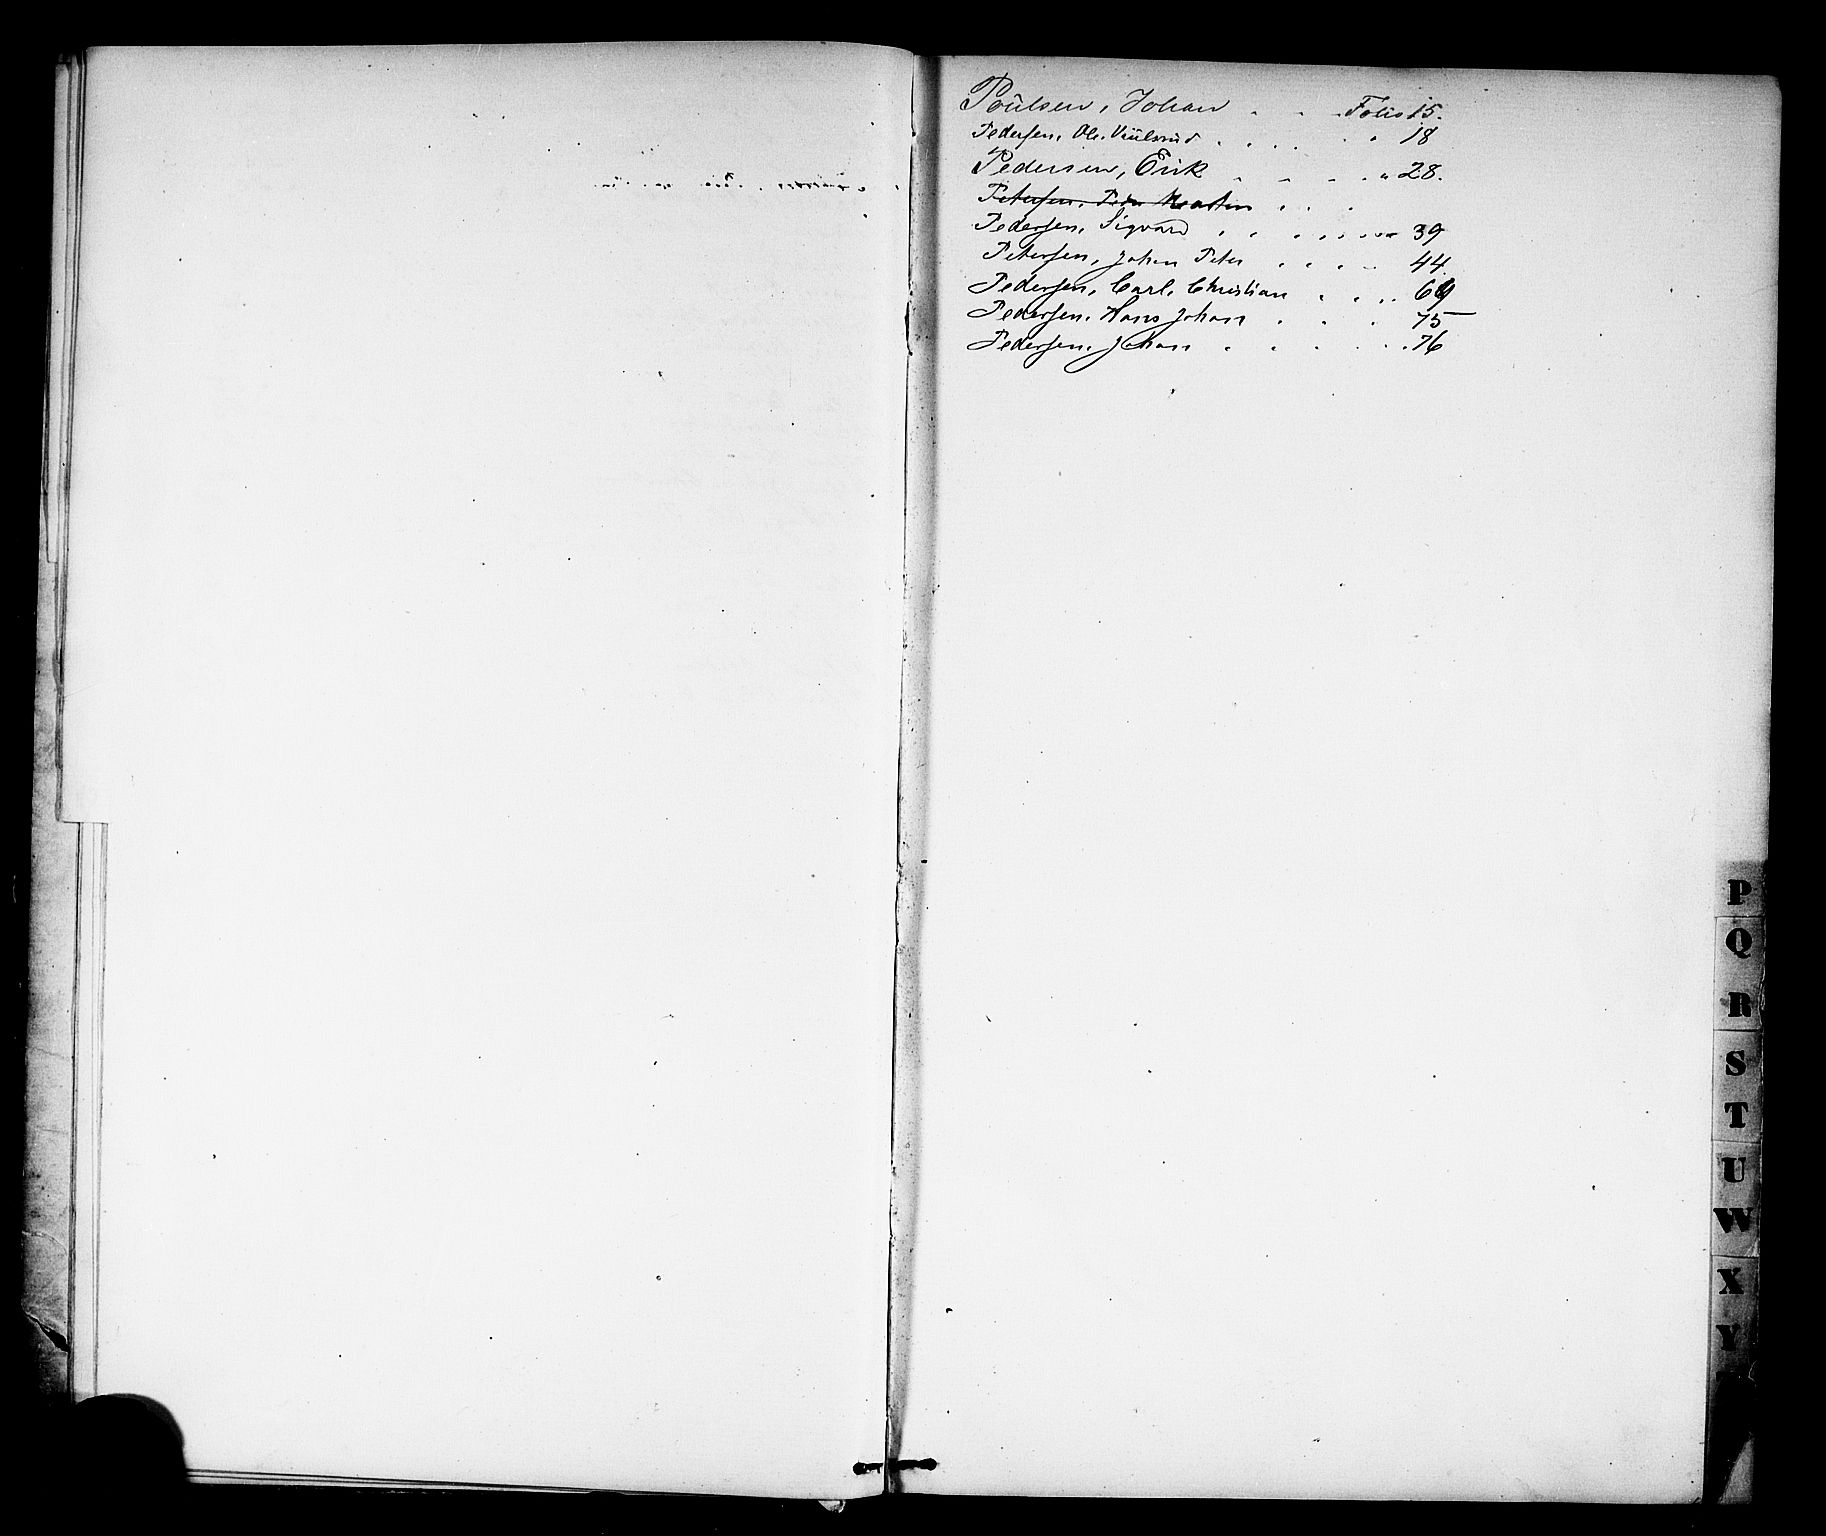 Poülsen, Johan . . . Folio 15.
Pedersen, Ole . . . . . . 18
Pedersen, Erik . . . . " 28.
Petersen, Peder Martin . . .
Pedersen, Sigvard . . . . . . . 39
Petersen, Johan Peter . . . . 44
Pedersen, Carl Christian . . . . 69
Pedersen, Hans Johan . . . 75
Pedersen, Johan . . . . . . 76
P
Q
R
S
T
U
W
X
Y